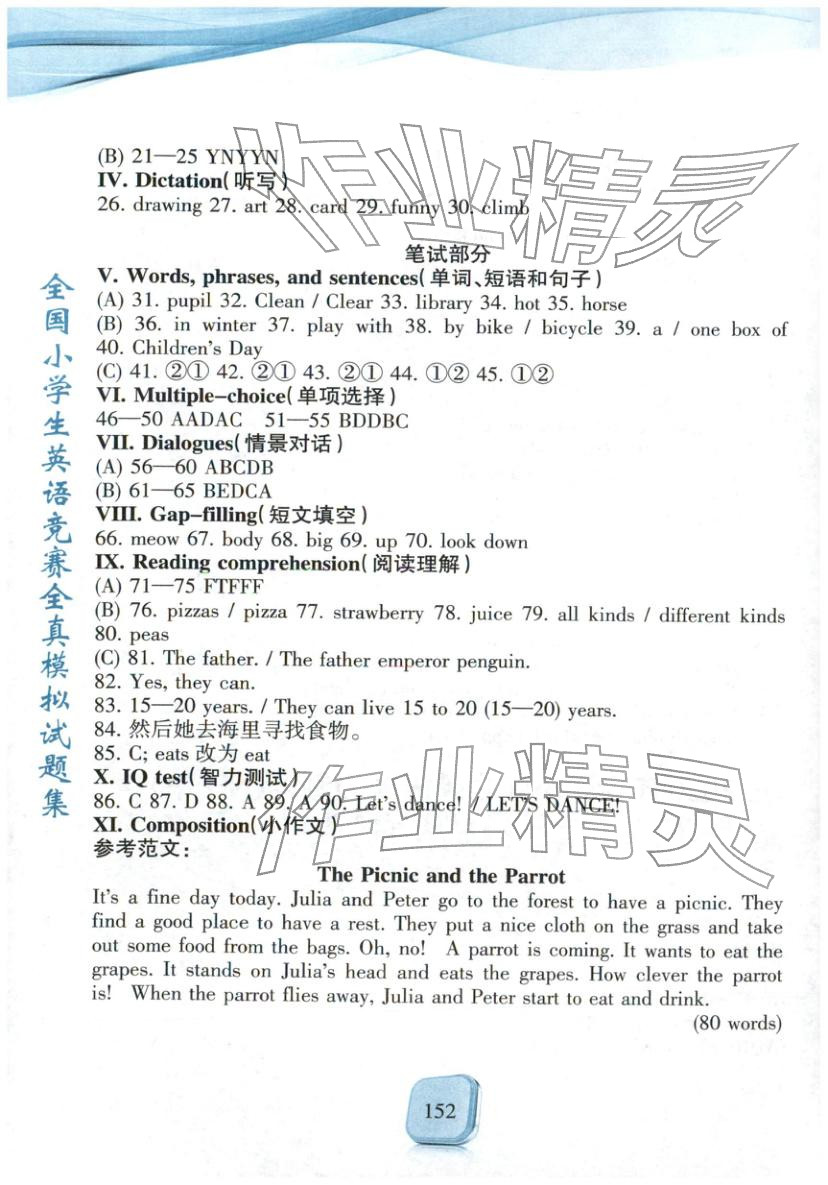 (B) 21—25 YNYYN
IV. Dictation(听写)
26. drawing 27. art 28. card 29. funny 30. climb
笔试部分
V. Words, phrases, and sentences(单词、短语和句子)
(A) 31. pupil 32. Clean / Clear 33. library 34. hot 35. horse
(B) 36. in winter 37. play with 38. by bike / bicycle 39. a / one box of
40. Children's Day
(C) 41. ②① 42. ②① 43. ②① 44. ①② 45. ①②
VI. Multiple-choice(单项选择)
46—50 AADAC 51—55 BDDBC
VII. Dialogues(情景对话)
(A) 56—60 ABCDB
(B) 61—65 BEDCA
VIII. Gap-filling(短文填空)
66. meow 67. body 68. big 69. up 70. look down
IX. Reading comprehension(阅读理解)
(A) 71—75 FTFFF
(B) 76. pizzas / pizza 77. strawberry 78. juice 79. all kinds / different kinds
80. peas
(C) 81. The father. / The father emperor penguin.
82. Yes, they can.
83. 15—20 years. / They can live 15 to 20 (15—20) years.
84. 然后她去海里寻找食物。
85. C; eats 改为 eat
X. IQ test(智力测试)
86. C 87. D 88. A 89. A 90. Let's dance! / LET'S DANCE!
XI. Composition(小作文)
参考范文:
The Picnic and the Parrot
It's a fine day today. Julia and Peter go to the forest to have a picnic. They
find a good place to have a rest. They put a nice cloth on the grass and take
out some food from the bags. Oh, no! A parrot is coming. It wants to eat the
grapes. It stands on Julia's head and eats the grapes. How clever the parrot
is! When the parrot flies away, Julia and Peter start to eat and drink.
(80 words)
全国小学生英语竞赛全真模拟试题集
152
作业精灵
作业精灵